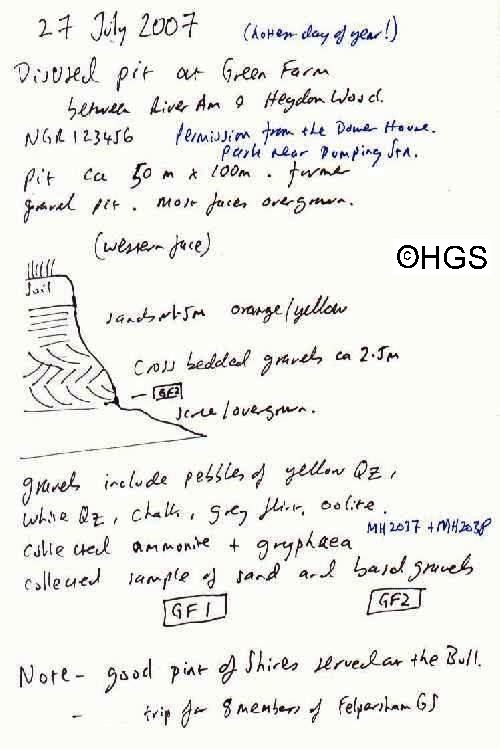 27 July 2007 (hottest day of year!)
Disused pit at Green Farm
between River Am & Heydon Wood.
NGR 123456 Permission from the Dower House.
Park near Pumping Stn.
pit ca 50m x 100m. former
gravel pit. most faces overgrown.
(western face)
©HGS
Soil
sands ~1.5m orange/yellow
cross bedded gravels ca 2.5m
GF2
scree/overgrown.
gravels include pebbles of yellow Qz,
white Qz, chalk, grey flint, oolite.
MH2037 + MH2038
collected ammonite + gryphaea
collected sample of sand and basal gravels
GF1 GF2
Note - good pint of Shires served at the Bull.
- trip for 8 members of Felpersham GS